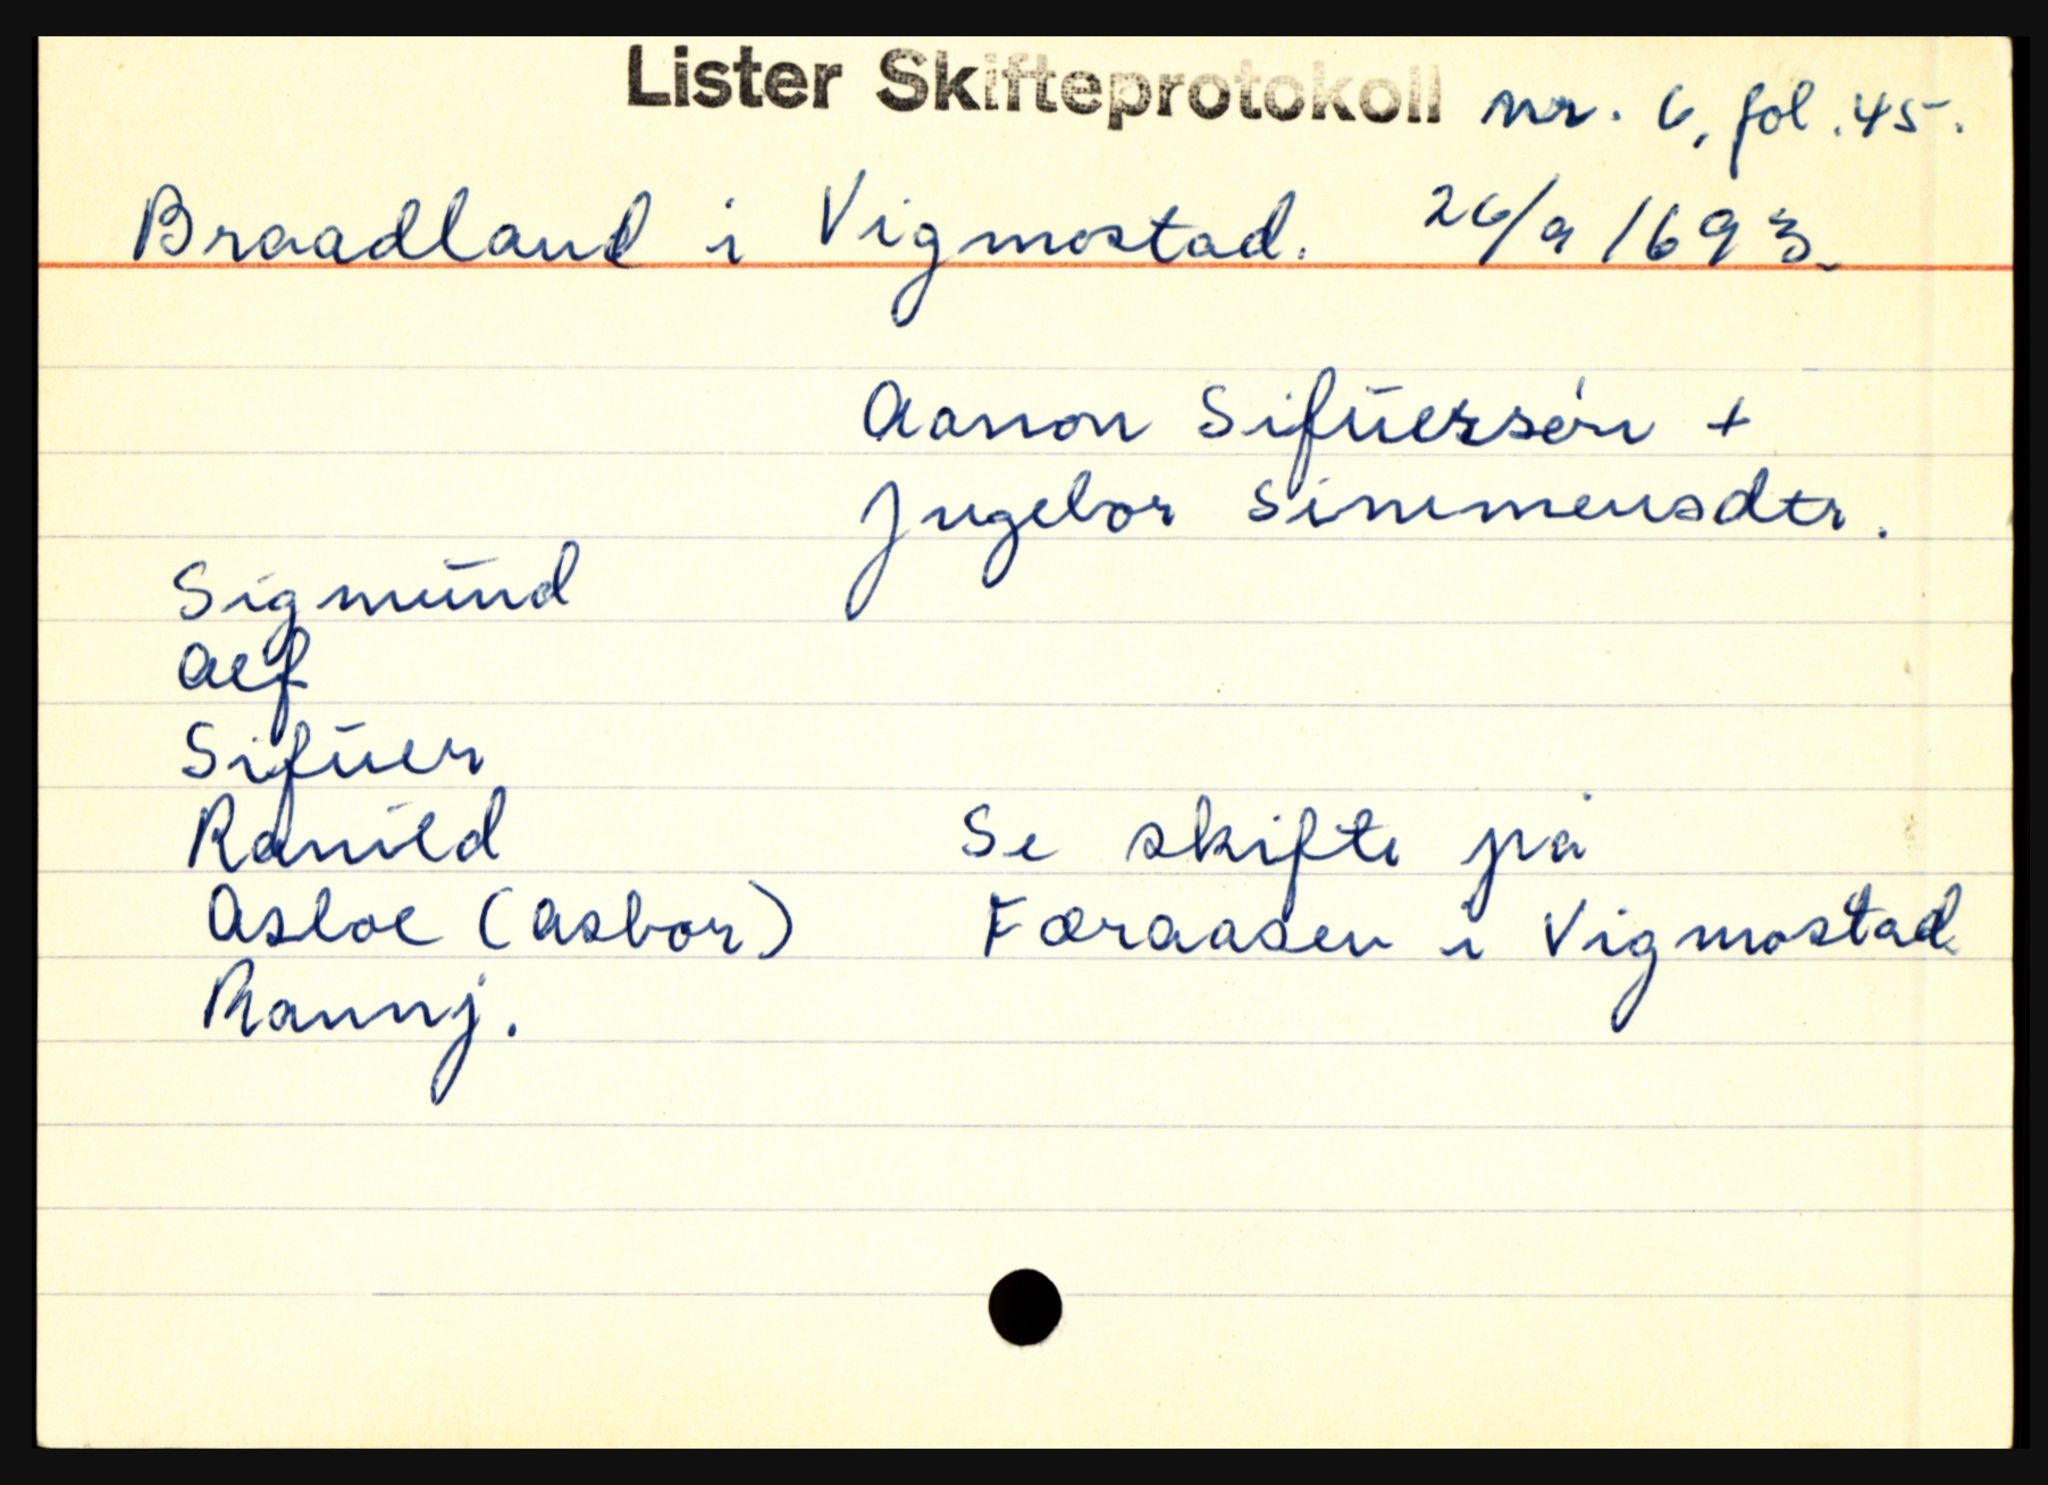 Lister Skifteprotokoll nr. 6, fol. 45.
Braadland i Vigmostad. 26/9 1693
Aanon Sifüersøn +
Jngebor Simmensdtr.
Sigmünd
Alf
Sifüer
Ranild Se skifte på
Asloe (Asbor) Færaasen i Vigmostad
Rannj.